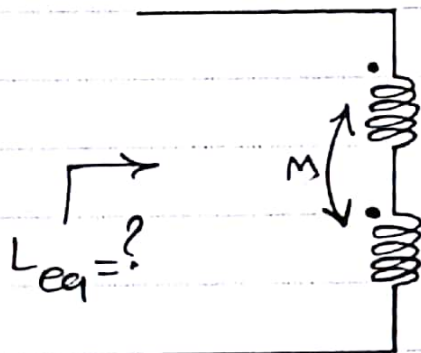 M
Leq=?